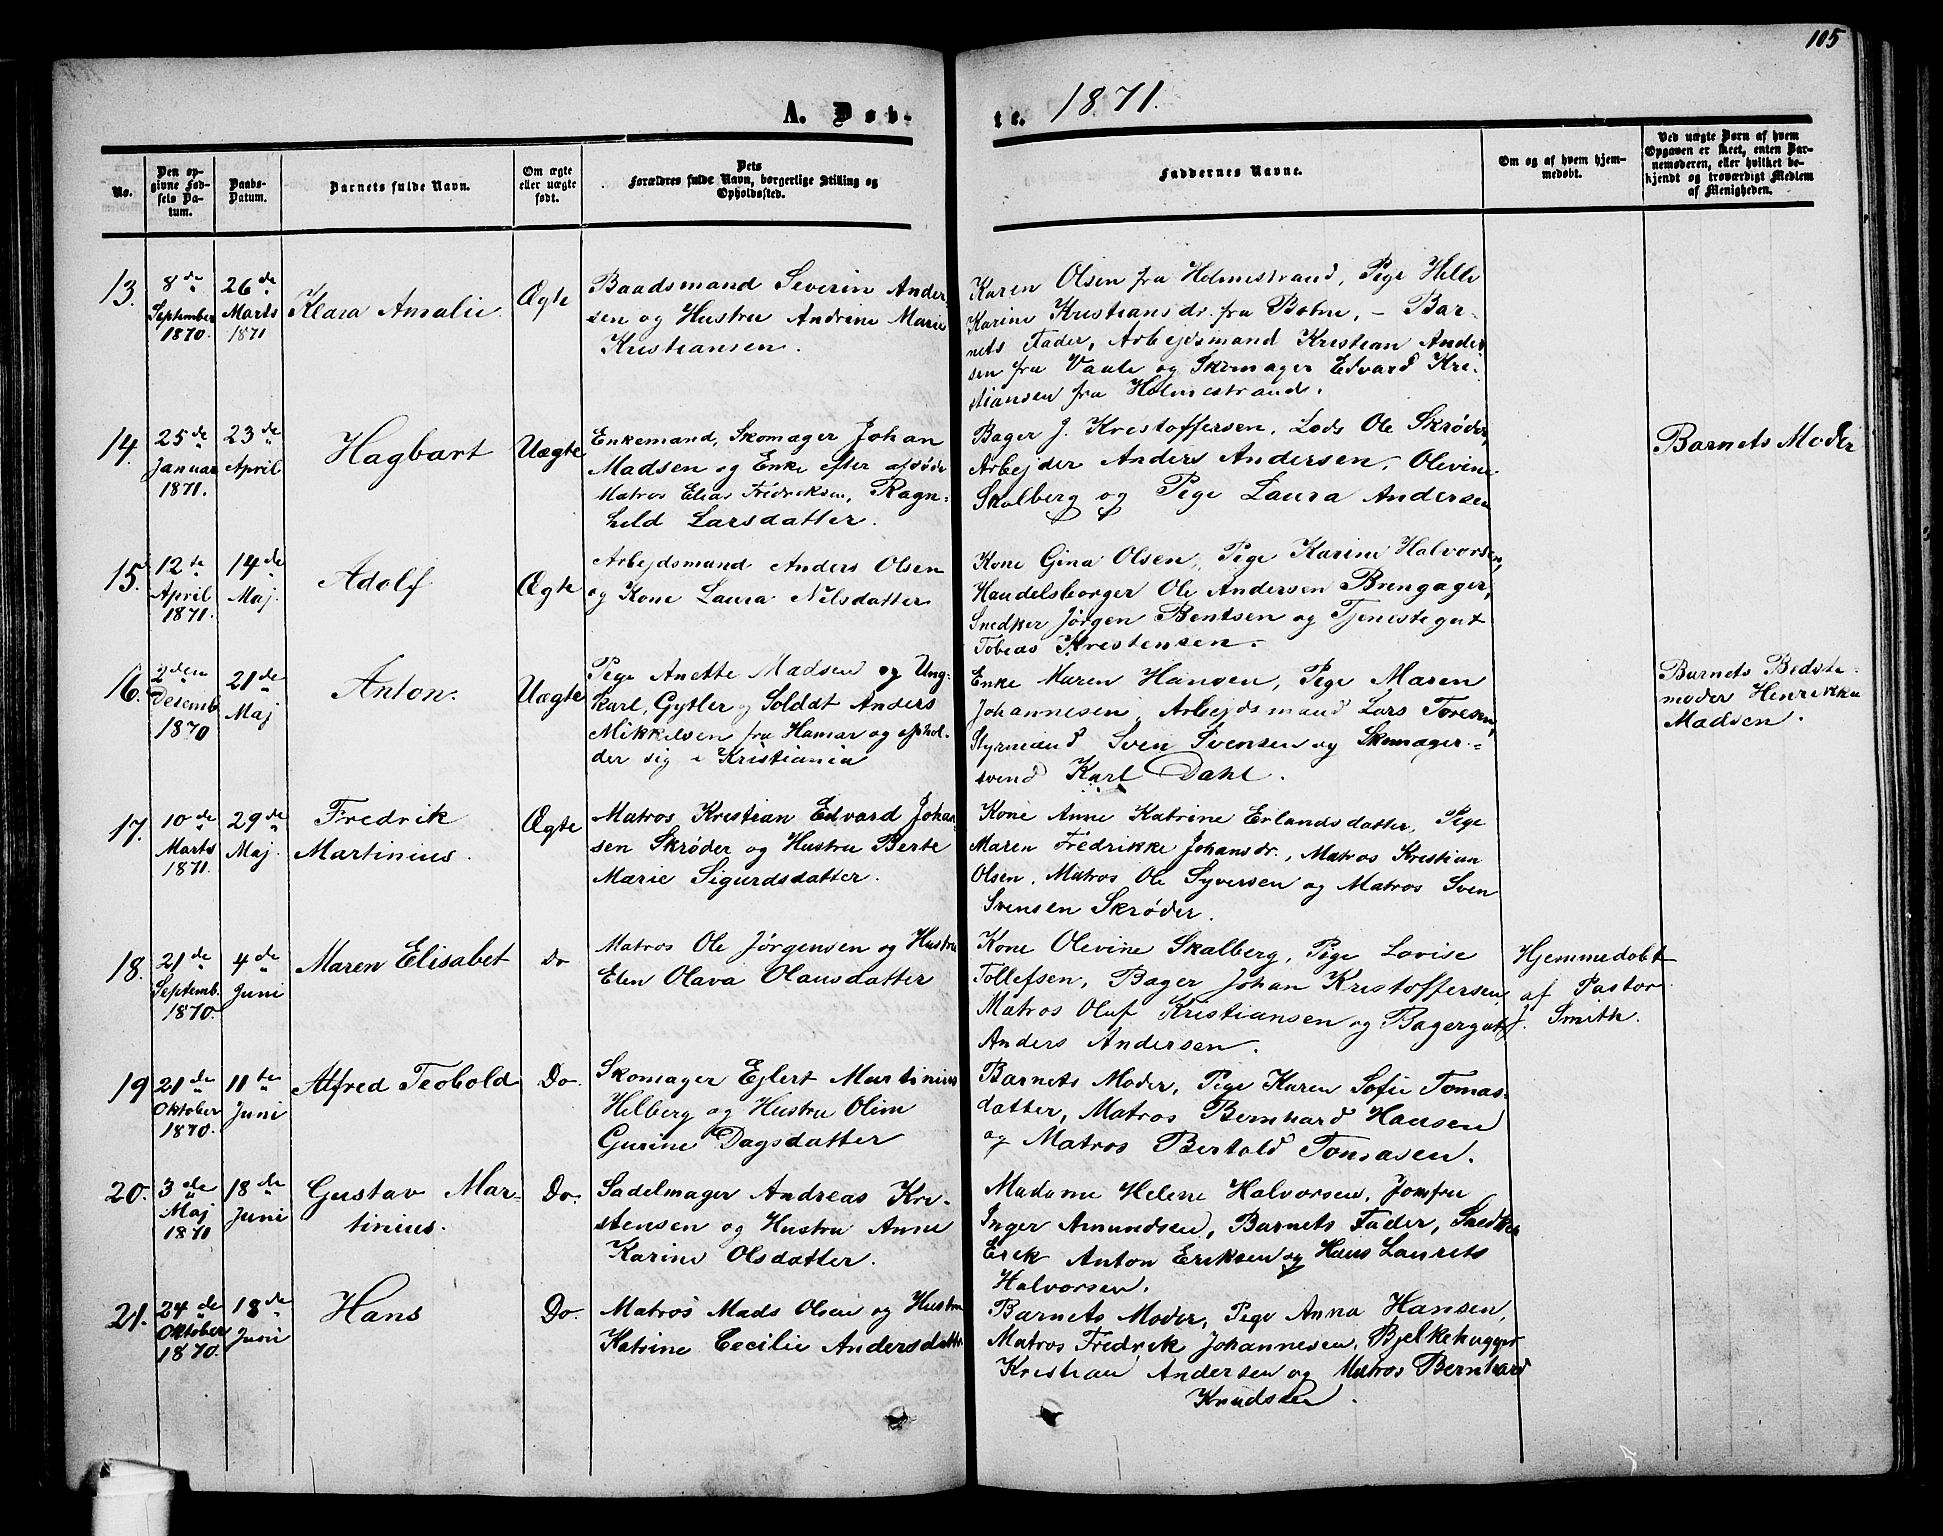 105
A. Døb-
te. 1871.
No.
Den op-
givne Fød-
sels Da-
tum.
Daabs-
Datum.
Barnets fulde Navn.
Om ægte
eller uægte
født.
Dets
Forældres fulde Navn, borgerlige Stilling og
Opholdssted.
Faddernes Navne.
Om og af hvem hjem-
medøbt.
Ved uægte Børn af hvem
Opgaven er skeet, enten Bar-
nemoderen, eller hvilket be-
kjendt og troværdigt Medlem
af Menigheden.
13.
8de
September
1870.
26de
Marts
1871
Klara Amalie
Ægte
Baadsmand Severin Ander
sen og Hustru Andrine Marie
Kristiansen.
Karen Olsen fra Holmestrand, Pige Helle
Karine Kristiansdr. fra Botne, - Bar-
nets Fader, Arbejdsmand Kristian Ander
sen fra Vaale og Skomager Edvard Kri-
stiansen fra Holmestrand.
14.
25de
Januar
1871.
23de
April
Hagbart
Uægte
Enkemand, Skomager Johan
Madsen og Enke efter afdøde
Matros Elias Fredriksen, Ragn-
hild Larsdatter.
Bager J. Kristoffersen, Lods Ole Skrøder,
Arbejder Anders Andersen, Olevine
Skalberg og Pige Laura Andersen
Barnets Moder
15.
12te
April
1871.
14de
Maj.
Adolf
Ægte
Arbejdsmand Anders Olsen
og Kone Laura Nilsdatter
Kone Gina Olsen, Pige Karine Halvorsen,
Handelsborger Ole Andersen Brengager,
Snedker Jørgen Bentsen og Tjenestegut
Tobias Kristensen.
16.
2den
Desemb
1870
21de
Maj
Anton.
Uægte
Pige Anette Madsen og Ung-
karl, Gytler og Soldat Anders
Mikkelsen fra Hamar og ophol-
der sig i Kristiania
Enke Maren Hansen, Pige Maren
Johannesen, Arbejdsmand Lars Toresen,
Styrmand Sven Svensen og Skomager-
svend Karl Dahl.
Barnets Bedste-
moder Henrikka
Madsen.
17.
10de
Marts
1871.
29de
Maj.
Fredrik
Martinius.
Ægte
Matros Kristian Edvard Johan-
sen Skrøder og Hustru Berte
Marie Sigurdsdatter.
Kone Anne Katrine Erlandsdatter, Pige
Maren Fredrikke Johansdr., Matros Kristian
Olsen, Matros Ole Syversen og Matros Sven
Svensen Skrøder.
18.
21de
Septemb.
1870.
4de
Juni
Maren Elisabet
do
Matros Ole Jørgensen og Hustru
Elen Olava Olausdatter
Kone Olevine Skalberg, Pige Lovise
Tollefsen, Bager Johan Kristoffersen,
Matros Oluf Kristiansen og Bagergut
Anders Andersen.
Hjemmedøbt
af Pastor
J. Smith.
19
21de
Oktober
1870.
11te
Juni
Alfred Teobold
Do.
Skomager Ejlert Martinius
Hilberg og Hustru Olim
Gurine Dagsdatter
Barnets Moder, Pige Karen Sofie Tomas-
datter, Matros Bernhard Hansen
og Matros Bertold Tomasen.
20.
3de
Maj
1871
18de
Juni
Gustav Mar-
tinius.
Do.
Sadelmager Andreas Kri-
stensen og Hustru Anne
Karine Olsdatter.
Madame Helene Halvorsen, Jomfru
Inger Amundsen, Barnets Fader, Snedker
Erik Anton Eriksen og Hans Laurits
Halvorsen.
21.
24de
Oktober
1870.
18de
Juni
Hans
Do.
Matros Mads Olsen og Hustru
Katrine Cecilie Andersdatter
Barnets Moder, Pige Anna Hansen,
Matros Fredrik Johannesen, Bjelkehugger
Kristian Andersen og Matros Bernhard
Knudsen.